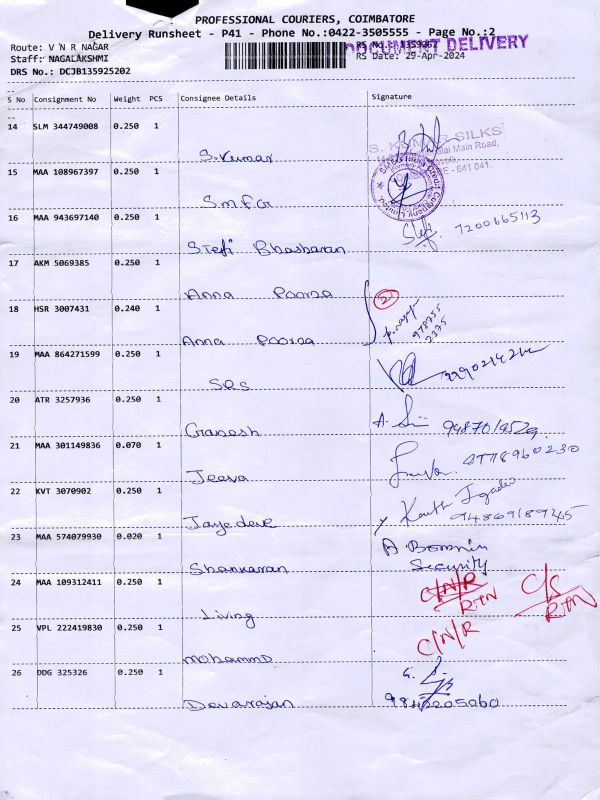 PROFESSIONAL COURIERS, COIMBATORE
Delivery Runsheet - P41 - Phone No.:0422-3505555 - Page No.:2
Route: V N R NAGAR
DOCUMENT DELIVERY
Staff: NAGALAKSHMI
RS Date: 29-Apr-2024
DRS No.: DCJB135925202
S No Consignment No Weight PCS Consignee Details Signature
14 SLM 344749008 0.250 1
S.Kumar
S. KUMAR SILKS
Main Road,
- 641 041.
15 MAA 108967397 0.250 1
SMFG
SMFG India Credit Company Limited
16 MAA 943697140 0.250 1
7200665113
S.Tefi Bhasbaran
17 AKM 5069385 0.250 1
Anna Pooroa
18 HSR 3007431 0.240 1
2
978755
2375
Anna Pooroa
19 MAA 864271599 0.250 1
SRS
20 ATR 3257936 0.250 1
Ganesh
21 MAA 301149836 0.070 1
Jeeva
22 KVT 3070902 0.250 1
94869189245
Jayadeve
23 MAA 574079930 0.020 1
Security
Shankaran
24 MAA 109312411 0.250 1
C/N/R
RTN
C/S
RTN
Living
25 VPL 222419830 0.250 1
C/N/R
mohammd
26 DDG 325326 0.250 1
Devarajan